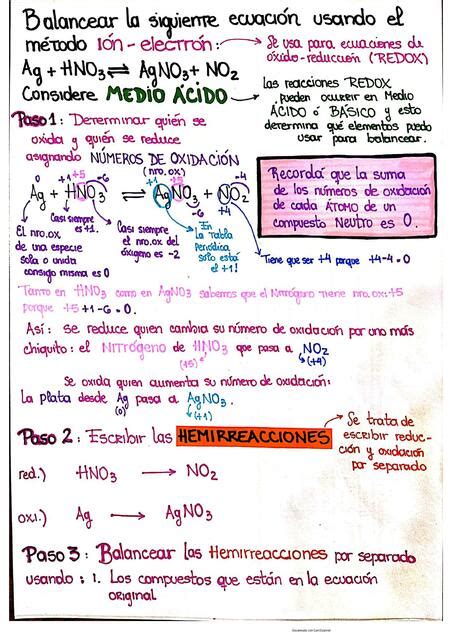 Balancear la siguiente ecuación usando el
método ión-electrón:
Se usa para ecuaciones de
óxido-reducción (REDOX)
Ag + HNO3 ⇌ AgNO3 + NO2
Considere MEDIO ÁCIDO
Las reacciones REDOX
pueden ocurrir en Medio
ÁCIDO ó BÁSICO y esto
determina qué elementos puedo
usar para balancear.
Paso 1: Determinar quién se
oxida y quién se reduce
asignando NÚMEROS DE OXIDACIÓN
(nro. ox)
0 +1 +5 +1 +5 -4
Ag + HNO3 ⇌ AgNO3 + NO2
-6 -6 +4
Recordá que la suma
de los números de oxidación
de cada ÁTOMO de un
compuesto NEUTRO es 0.
El nro.ox
de una especie
sola o unida
consigo misma es 0
Casi siempre
es +1.
Casi siempre
el nro.ox del
óxigeno es -2
En
la tabla
periódica
solo está
el +1!
Tiene que ser +4 porque +4-4=0
Tanto en HNO3 como en AgNO3 sabemos que el Nitrógeno tiene nro.ox:+5
porque +5+1-6=0.
Así: se reduce quien cambia su número de oxidación por uno más
chiquito: el NITRÓGENO de HNO3 que pasa a NO2
(+5) (+4)
Se oxida quien aumenta su número de oxidación:
La plata desde Ag pasa a AgNO3.
(0) (+1)
Paso 2: Escribir las HEMIRREACCIONES
Se trata de
escribir reduc-
ción y oxidación
por separado
red.) HNO3 → NO2
oxi.) Ag → AgNO3
Paso 3: Balancear las Hemirreacciones por separado
usando: 1. Los compuestos que están en la ecuación
original